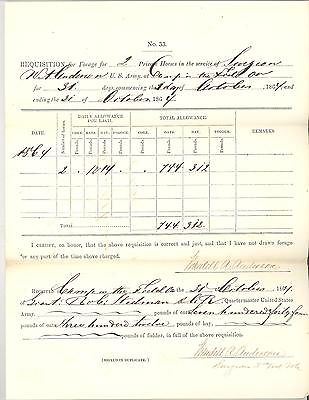 No. 33.
REQUISITION for Forage for 2 Private Horses in the service of Surgeon
W. A. Anderson U. S. Army, at Camp in the Field Co
for 31 days, commencing the 1 day of October 1864 and
ending the 31 of October 1864.
DATE. Number of horses. DAILY ALLOWANCE FOR EACH. TOTAL ALLOWANCE. REMARKS.
CORN. OATS. HAY. FODDER. CORN. OATS. HAY. FODDER.
Pounds. Pounds. Pounds. Pounds. Pounds. Pounds. Pounds. Pounds.
1864
2 744 312
Total 744 312
I CERTIFY, on honor, that the above requisition is correct and just, and that I have not drawn forage
for any part of the time above charged.
Wendell A. Anderson
Received Camp in the Field Co the 31 October 1864,
of Quartermaster United States
Army, pounds of corn, Seven hundred forty four
pounds of oats, Three hundred twelve pounds of hay,
pounds of fodder, in full of the above requisition.
[SIGNED IN DUPLICATE.]
Wendell A. Anderson
Surgeon